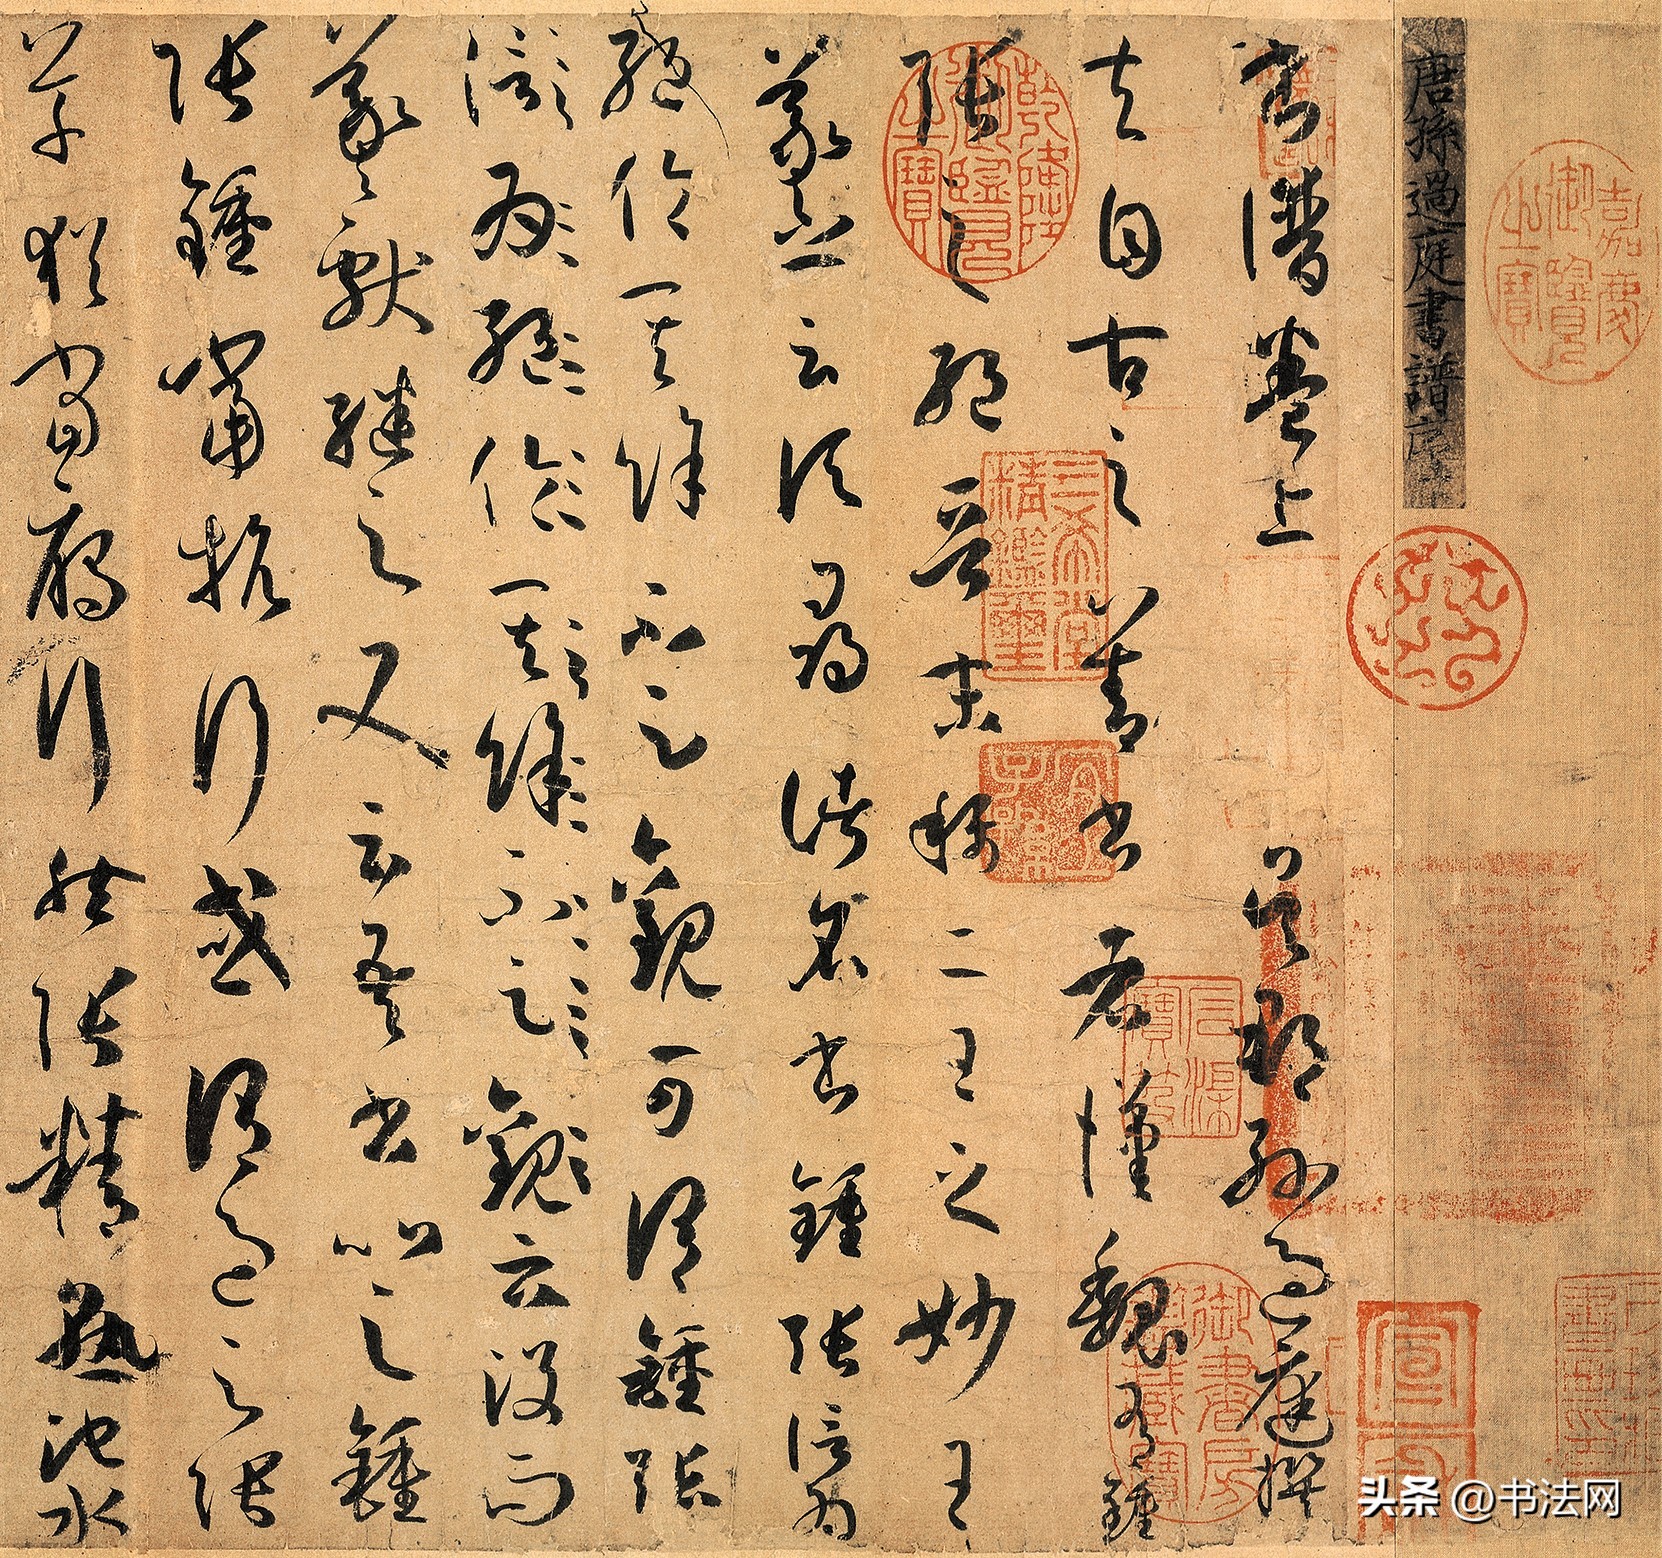 嘉慶御覽之寶
唐孫過庭書譜序
書譜卷上 吳郡孫過庭撰
夫自古之善書者漢魏有鍾
張之絕晉末稱二王之妙王
羲之云頃尋諸名書鍾張信為
絕倫其餘不足觀可謂鍾張
信為絕倫其餘不足觀云沒而
羲獻繼之又云吾書比之鍾
張鍾當抗行或謂過之張
草猶當鴈行然張精熟池水
乾隆御覽之寶
三希堂精鑑璽
宜子孫
石渠寶笈
头条 @书法网